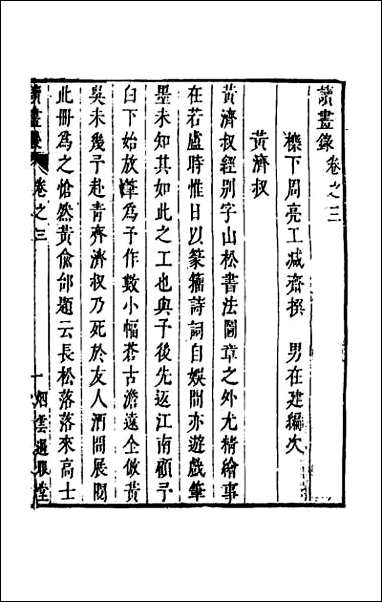 讀畫錄卷之三
櫟下周亮工減齋撰　男在建編次
黃濟叔
黃濟叔經别字山松書法圖章之外尤精繪事
在若盧時惟日以篆籀詩詞自娛間亦遊戲筆
墨未知其如此之工也與予後先返江南顧予
白下始放筆為予作數小幅蒼古澹遠全倣黃
吳未幾予赴青齊濟叔乃死於友人酒間展閱
此册為之愴然黃俞邰題云長松落落來高士
讀畫錄　卷之三　一　烟雲過眼堂